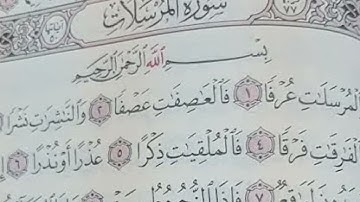 سُورَةُ الْمُرْسَلَاتِ
بِسْمِ اللَّهِ الرَّحْمَٰنِ الرَّحِيمِ
الْمُرْسَلَاتِ عُرْفًا ١ فَالْعَاصِفَاتِ عَصْفًا ٢ وَالنَّاشِرَاتِ نَشْرًا
الْفَارِقَاتِ فَرْقًا ٤ فَالْمُلْقِيَاتِ ذِكْرًا ٥ عُذْرًا أَوْ نُذْرًا ٦
لَوَاقِعٌ ٧ فَإِذَا النُّجُومُ